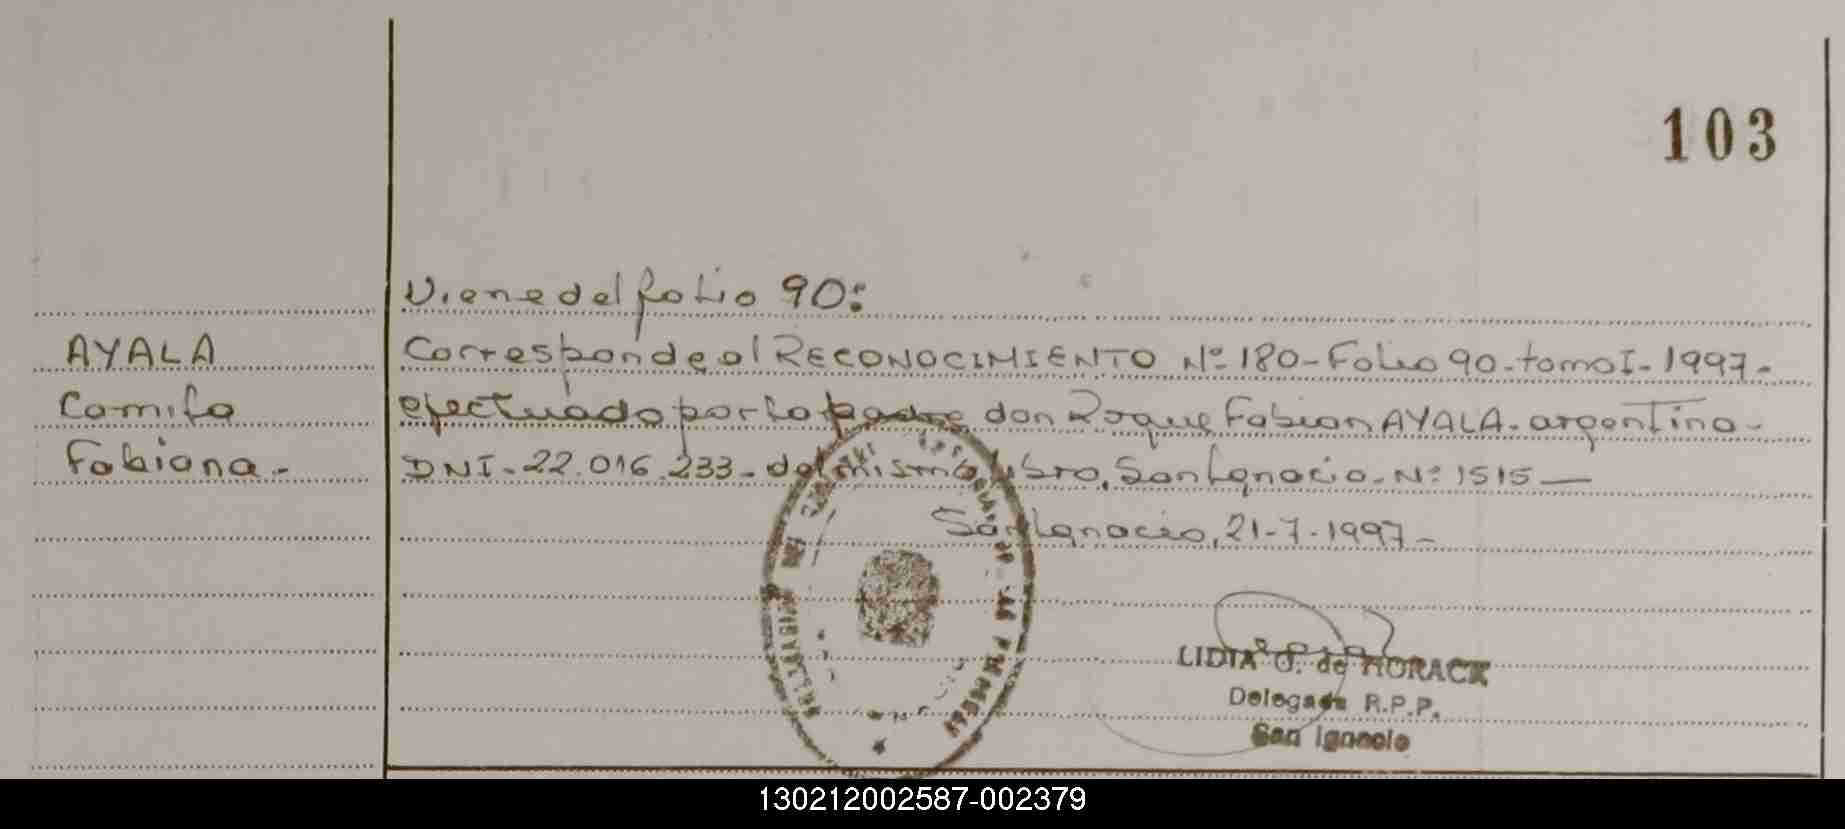 103
Viene del folio 90:
AYALA
Camila
Fabiana.-
Corresponde al RECONOCIMIENTO Nº 180-Folio 90-tomo I-1997-
efectuado por lo padre don Roque Fabian AYALA-argentino-
DNI-22.016.233-del mismo libro, San Ignacio-Nº 1515—
San Ignacio, 21-7-1997-
LIDIA O. de HORACK
Delegada R.P.P.
San Ignacio
130212002587-002379